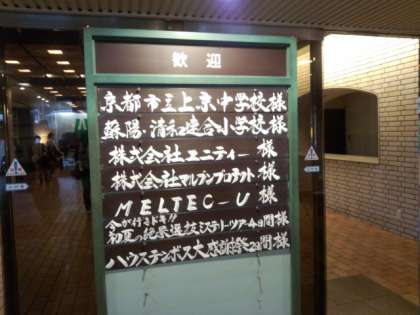 歓迎
京都市立上京中学校様
蘇陽・清和連合小学校様
株式会社ユニティー 様
株式会社マルブンプロダクト 様
MELTEC-U 様
今が行きドキ!!
初夏の絶景選抜ミステリーツアー4日間様
ハウステンボス大感謝祭2日間様